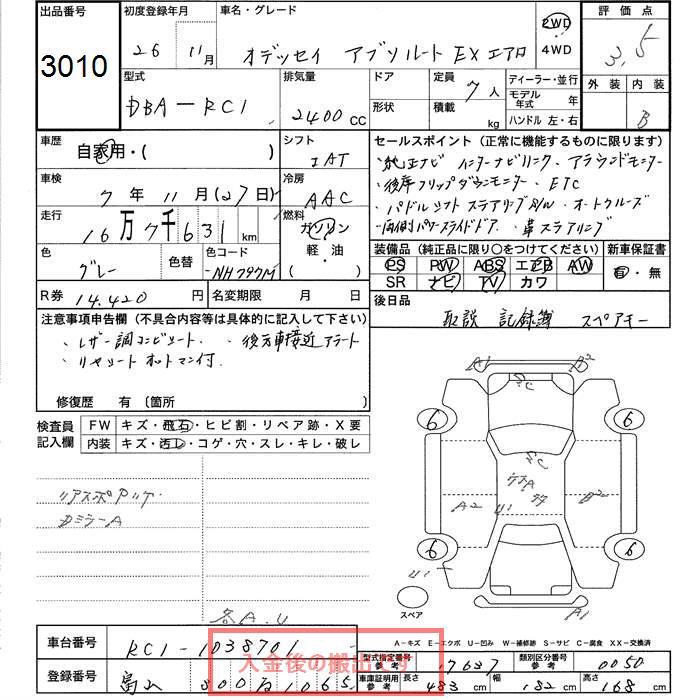 出品番号 初度登録年月 車名・グレード 2WD 評価点
3010 26 11月 オデッセイ アブソルート EX エアロ 4WD 3.5
型式 排気量 ドア 定員 7人 ディーラー・並行 外装 内装
DBA-RC1 2400 CC 形状 積載 kg モデル年式 年 B
ハンドル 左・右
車歴 自家用・( ) シフト IAT セールスポイント (正常に機能するものに限ります)
・純正ナビ インターナビリンク ・アラウンドモニター
車検 7年 11月(27日) 冷房 AAC ・後席フリップダウンモニター ・ETC
・パドルシフト ステアリング ・オートクルーズ
走行 16万7千631 km 燃料 ガソリン ・両側パワースライドドア ・革ステアリング
軽・油
( )
色 グレー 色替 色コード NH797M 装備品 (純正品に限り○をつけてください) 新車保証書
PS PW ABS エアB AW 有・無
SR ナビ TV カワ
R券 14,420円 名変期限 月 日 後日品
取説 記録簿 スペアキー
注意事項申告欄 (不具合内容等は具体的に記入して下さい)
・レザー調コンビシート ・後方車接近アラート
・リヤシートオットマン付
修復歴 有 〔箇所 〕
検査員記入欄 FW キズ・飛石・ヒビ割・リペア跡・X要
内装 キズ・汚レ・コゲ・穴・スレ・キレ・破レ
A1 B2
C
6 6
C
A2 U1 B2
6 6
U1
スペア A1
リアスポ
DミラーA
各A.U
A-キズ E-エクボ U-凹み W-補修跡 S-サビ C-腐食 XX-交換済
車台番号 RC1-1038701 型式指定番号 参考 17637 類別区分番号 参考 0050
入金後の搬出です
登録番号 富山 300 1065 車庫証明用 参考 長さ 483cm 幅 182cm 高さ 168cm